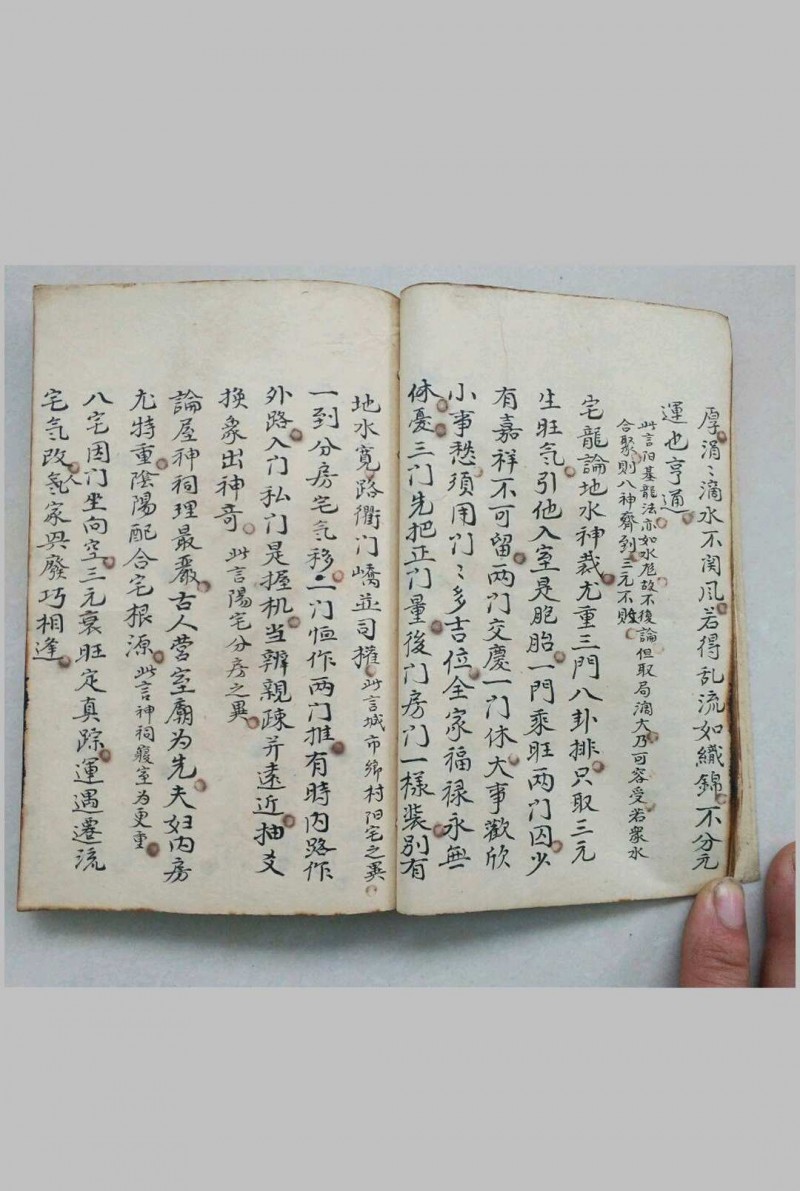 厚涓〻滴水不関风若得乱流如織錦不分元
運也亨通
此言阳基龍法亦如水龙故不復論但取局滴大乃可容受若衆水
合聚则八神齊到三元不敗
宅龍論地水神裁尤重三門八卦排只取三元
生旺気引他入室是胞胎一門乘旺两门囚少
有嘉祥不可留两门交慶一门休大事歡欣
小事愁須用门〻多吉位全家福禄永無
休憂三门先把正门量後门房门一樣装别有
地水寛路衢门嶠並司權此言城市鄉村阳宅之異
一到分房宅気移二门恒作两门推有時内路作
外路入门私门是握机当辨親疎并遠近抽爻
换象出神奇此言陽宅分房之異
論屋神祠理最嚴古人营室廟为先夫妇内房
尤特重陰陽配合宅根源此言神祠寝室为更重
八宅因门坐向空三元衰旺定真踪運遇遷流
宅気改人家興廢巧相逢